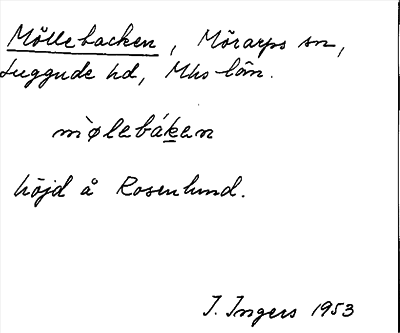 Möllebacken, Mörarps sn,
Luggude hd, Mhs län.
m̀ølebáḵen
höjd å Rosenlund.
I. Ingers 1953